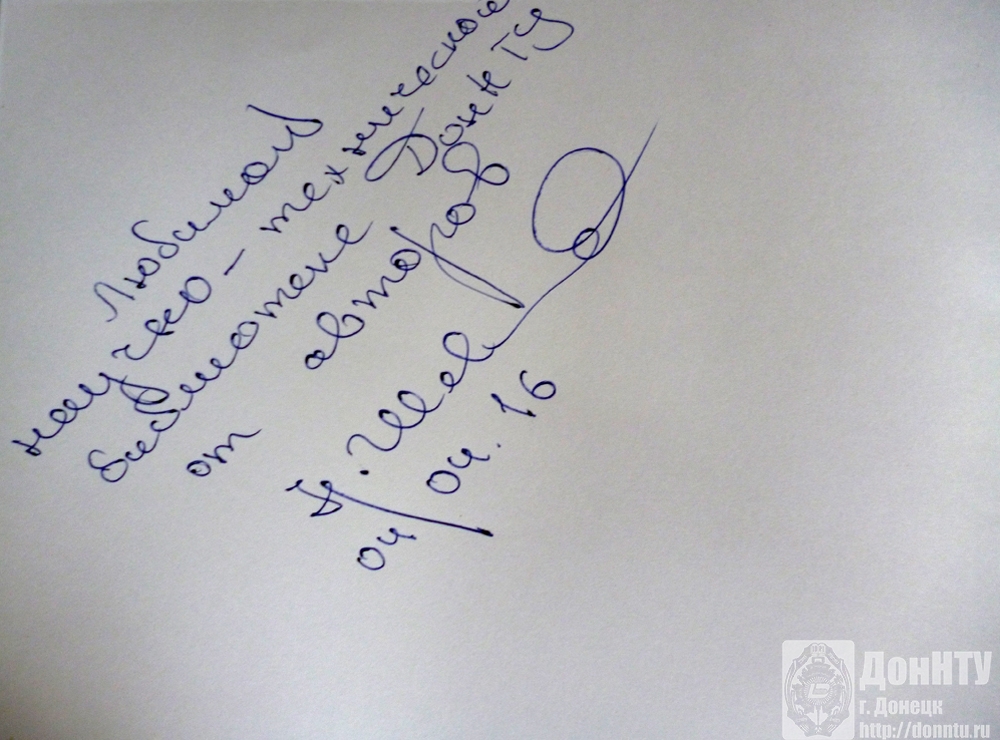 Любимой
научно-технической
библиотеке ДонНТУ
от авторов
04.04.16
ДонНТУ
г. Донецк
http://donntu.ru